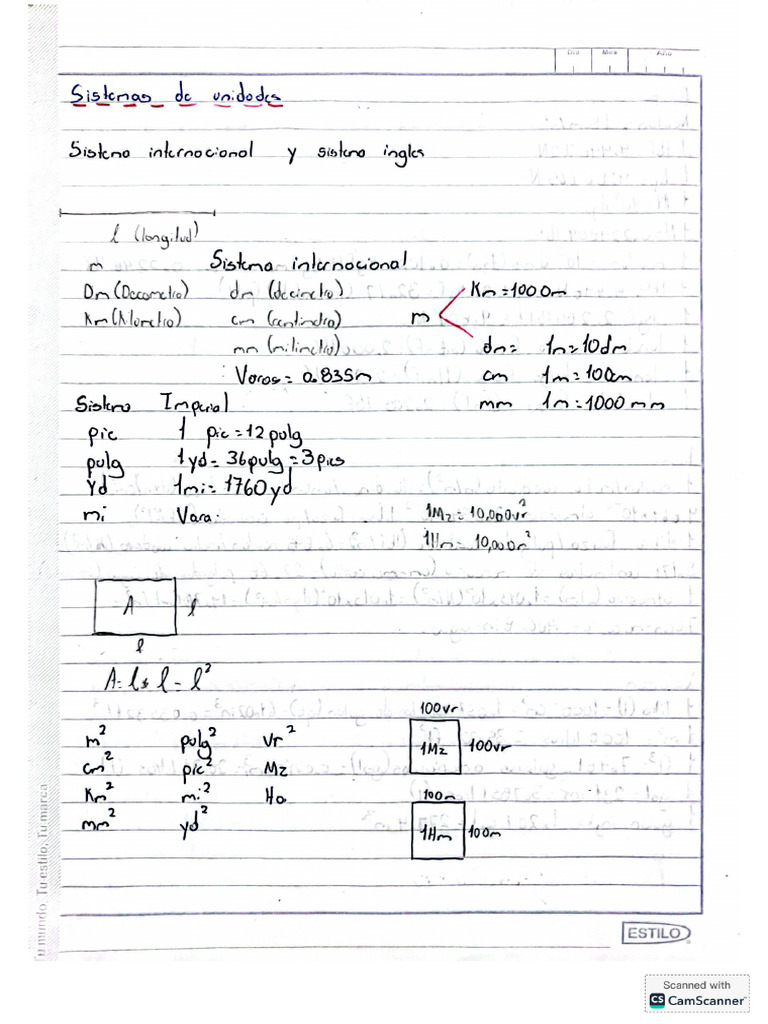 Dia Mes Año
Sistemas de unidades
Sistema internacional y sistema ingles
l (longitud)
m Sistema internacional
Dm (Decametro) dm (decimetro) Km = 1000m
Km (Kilometro) cm (centimetro) m
mm (milimetro) dm = 1m = 10dm
Varas = 0.835m cm 1m = 100cm
Sistema Imperial mm 1m = 1000 mm
pie 1 pie = 12 pulg
pulg 1yd = 36pulg = 3pies
yd 1mi = 1760yd
mi Vara: 1Mz = 10,000vr²
1Hm = 10,000m²
A l
l
A = l * l = l²
100vr
m² pulg² vr² 1Mz 100vr
cm² pie² Mz
Km² mi² Ha 100m
mm² yd² 1Hm 100m
Tu mundo, Tu estilo, Tu marca
ESTILO
Scanned with
CS CamScanner